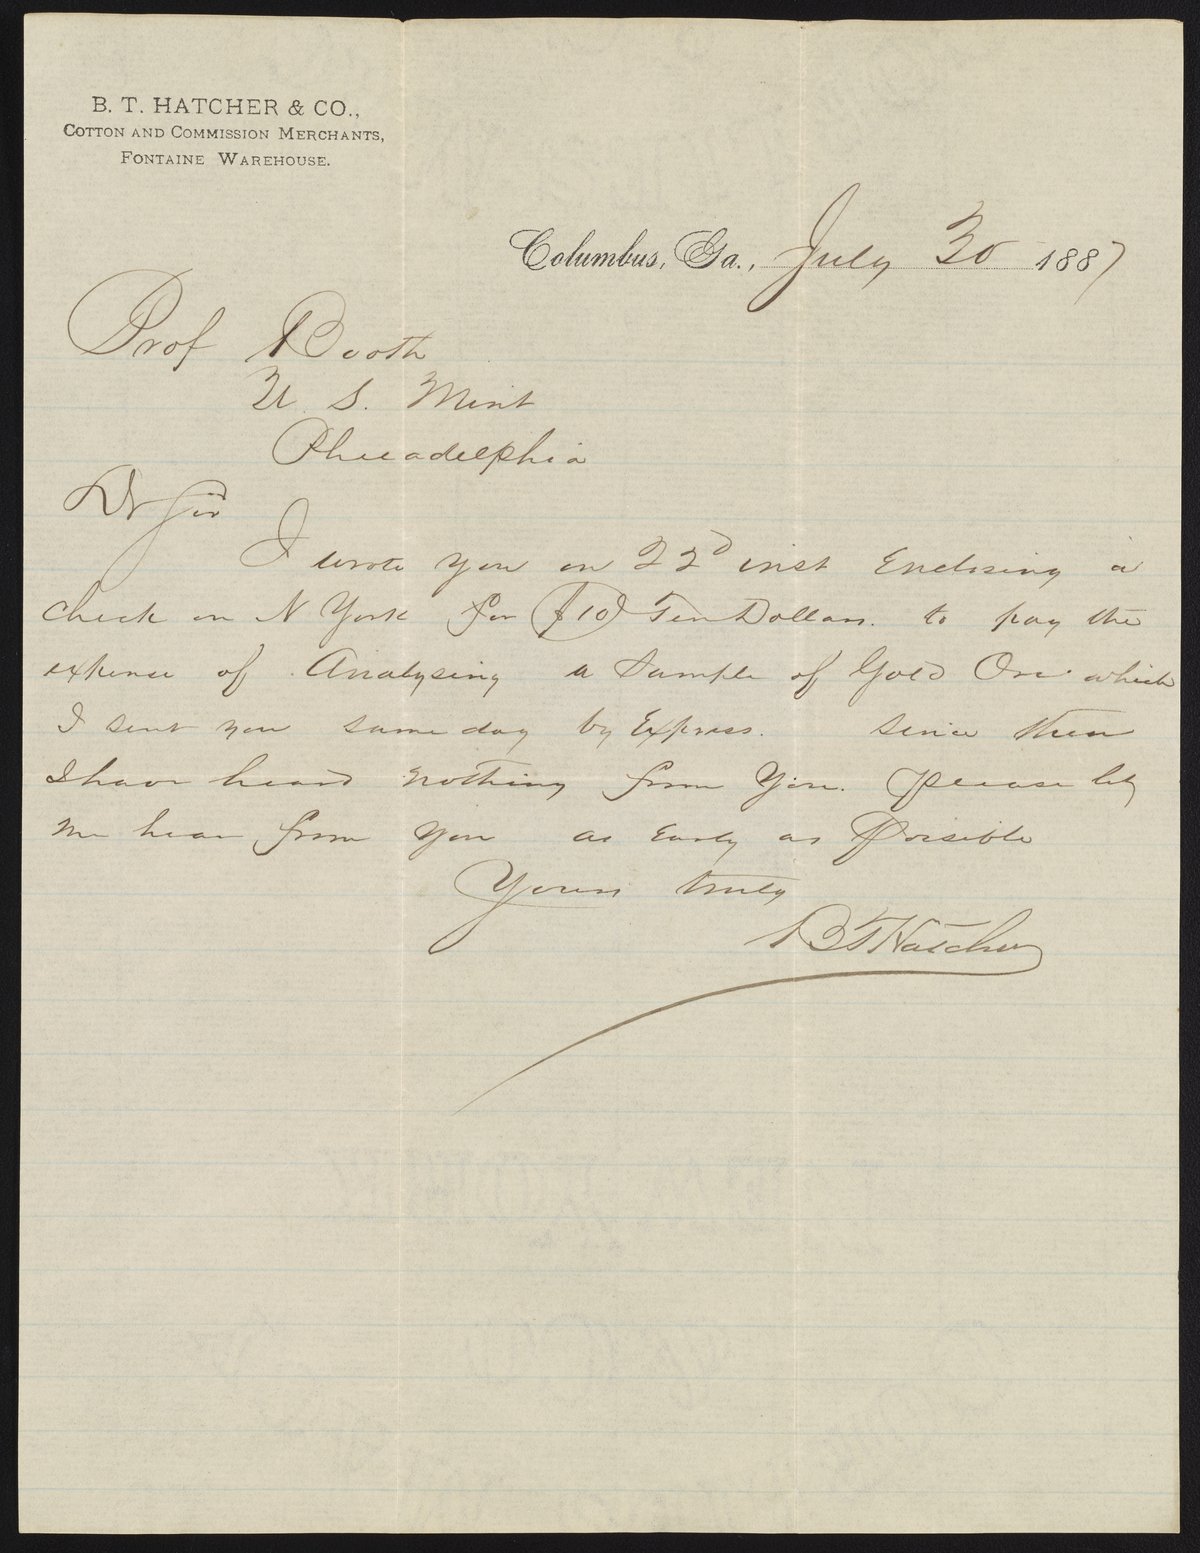 B. T. HATCHER & CO.,
COTTON AND COMMISSION MERCHANTS,
FONTAINE WAREHOUSE.
Columbus, Ga., July 30 1887
Prof Booth
U. S. Mint
Philadelphia
Dr Sir
I wrote you on 22d inst Enclosing a
check on N York for ($10) Ten Dollars. to pay the
expense of Analysing a Sample of Gold Ore which
I sent you same day by Express. since then
I have heard nothing from You. please let
me hear from You as Early as Possible
Yours truly
B T Hatcher